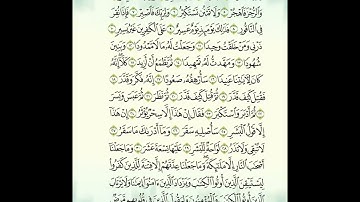 وَالرُّجْزَ فَاهْجُرْ ۝ وَلَا تَمْنُن تَسْتَكْثِرُ ۝ وَلِرَبِّكَ فَاصْبِرْ ۝ فَإِذَا نُقِرَ
فِي النَّاقُورِ ۝ فَذَٰلِكَ يَوْمَئِذٍ يَوْمٌ عَسِيرٌ ۝ عَلَى الْكَٰفِرِينَ غَيْرُ يَسِيرٍ ۝
ذَرْنِي وَمَنْ خَلَقْتُ وَحِيدًا ۝ وَجَعَلْتُ لَهُۥ مَالًا مَّمْدُودًا ۝ وَبَنِينَ
شُهُودًا ۝ وَمَهَّدتُّ لَهُۥ تَمْهِيدًا ۝ ثُمَّ يَطْمَعُ أَنْ أَزِيدَ ۝ كَلَّآ إِنَّهُۥ
كَانَ لِءَايَٰتِنَا عَنِيدًا ۝ سَأُرْهِقُهُۥ صَعُودًا ۝ إِنَّهُۥ فَكَّرَ وَقَدَّرَ ۝
فَقُتِلَ كَيْفَ قَدَّرَ ۝ ثُمَّ قُتِلَ كَيْفَ قَدَّرَ ۝ ثُمَّ نَظَرَ ۝ ثُمَّ عَبَسَ وَبَسَرَ ۝
ثُمَّ أَدْبَرَ وَاسْتَكْبَرَ ۝ فَقَالَ إِنْ هَٰذَآ إِلَّا سِحْرٌ يُؤْثَرُ ۝ إِنْ هَٰذَآ
إِلَّا قَوْلُ الْبَشَرِ ۝ سَأُصْلِيهِ سَقَرَ ۝ وَمَآ أَدْرَىٰكَ مَا سَقَرُ ۝
لَا تُبْقِي وَلَا تَذَرُ ۝ لَوَّاحَةٌ لِّلْبَشَرِ ۝ عَلَيْهَا تِسْعَةَ عَشَرَ ۝ وَمَا جَعَلْنَآ
أَصْحَٰبَ النَّارِ إِلَّا مَلَٰٓئِكَةً وَمَا جَعَلْنَا عِدَّتَهُمْ إِلَّا فِتْنَةً لِّلَّذِينَ كَفَرُوا
لِيَسْتَيْقِنَ الَّذِينَ أُوتُوا الْكِتَٰبَ وَيَزْدَادَ الَّذِينَ ءَامَنُوٓا إِيمَٰنًا وَلَا يَرْتَابَ
الَّذِينَ أُوتُوا الْكِتَٰبَ وَالْمُؤْمِنُونَ وَلِيَقُولَ الَّذِينَ فِي قُلُوبِهِم مَّرَضٌ